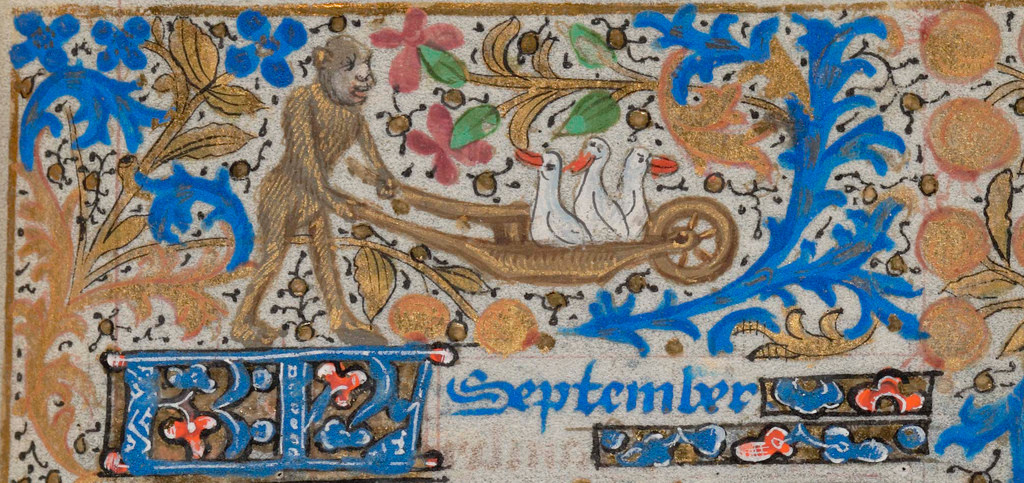 KL September